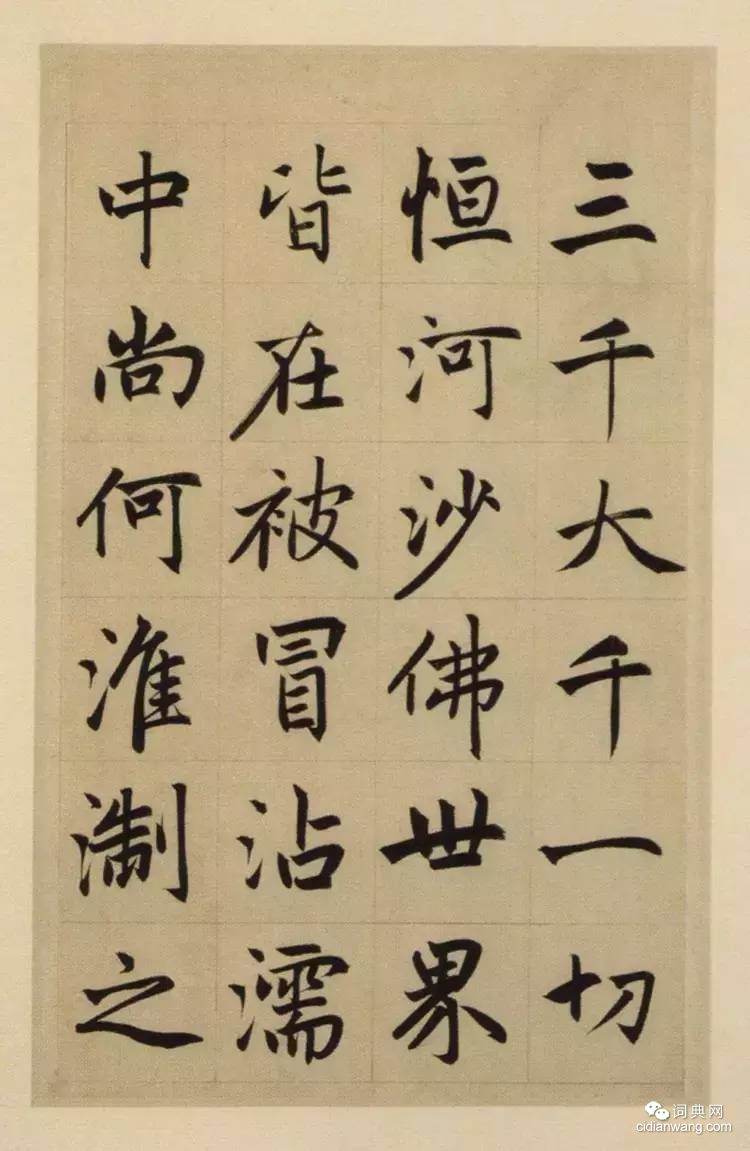 三千大千一切
恒河沙佛世界
皆在被冒沾濡
中尚何淮淛之
词典网
cidianwang.com